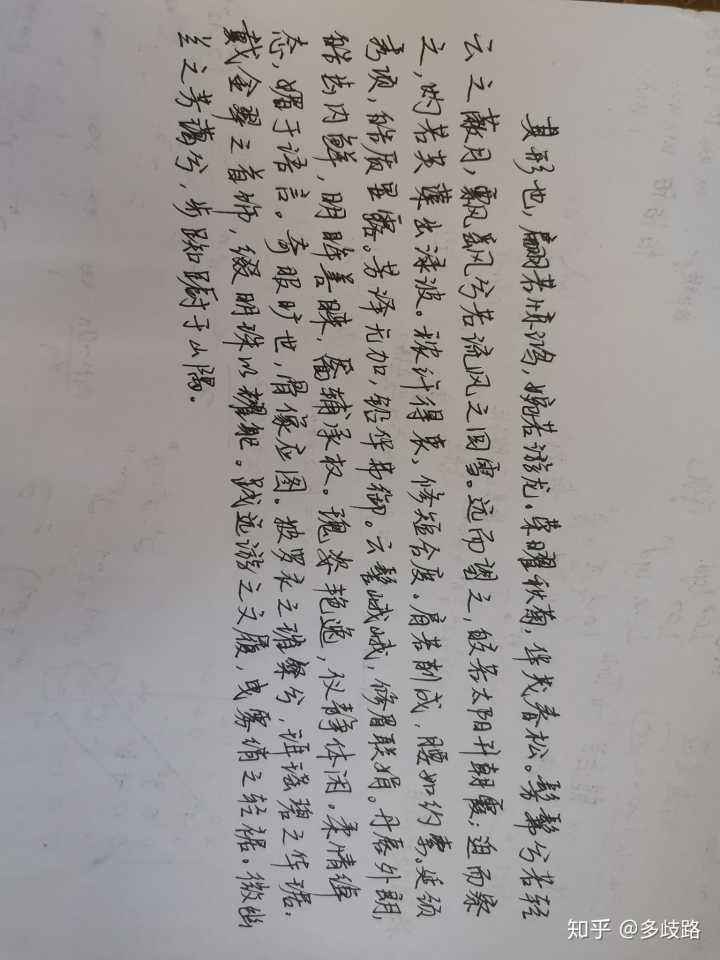 其形也，翩若惊鸿，婉若游龙。荣曜秋菊，华茂春松。髣髴兮若轻
云之蔽月，飘飖兮若流风之回雪。远而望之，皎若太阳升朝霞；迫而察
之，灼若芙蕖出渌波。秾纤得衷，修短合度。肩若削成，腰如约素。延颈
秀项，皓质呈露。芳泽无加，铅华弗御。云髻峨峨，修眉联娟。丹唇外朗，
皓齿内鲜，明眸善睐，靥辅承权。瑰姿艳逸，仪静体闲。柔情绰
态，媚于语言。奇服旷世，骨像应图。披罗衣之璀粲兮，珥瑶碧之华琚。
戴金翠之首饰，缀明珠以耀躯。践远游之文履，曳雾绡之轻裾。微幽
兰之芳蔼兮，步踟蹰于山隅。
知乎 @多歧路